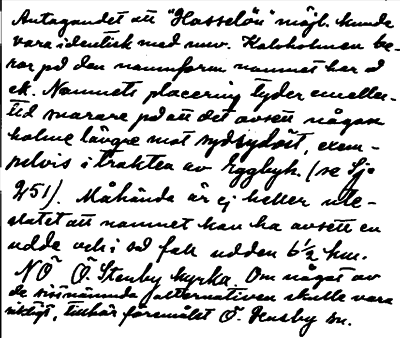 Antagandet att "Hasselön" möjl. kunde
vara identisk med nuv. Kalvholmen be-
ror på den namnform namnet har å
ek. Namnets placering tyder emeller-
tid snarare på att det avsett någon
holme längre mot sydsydöst, exem-
pelvis i trakten av Eggbyh. (se Sjö
251). Måhända är ej heller ute-
slutet att namnet kan ha avsett en
udde och i så fall udden 6½ hm.
NÖ Ö. Stenby kyrka. Om något av
de sistnämnda alternativen skulle vara
riktigt, tillhör föremålet Ö. Husby sn.